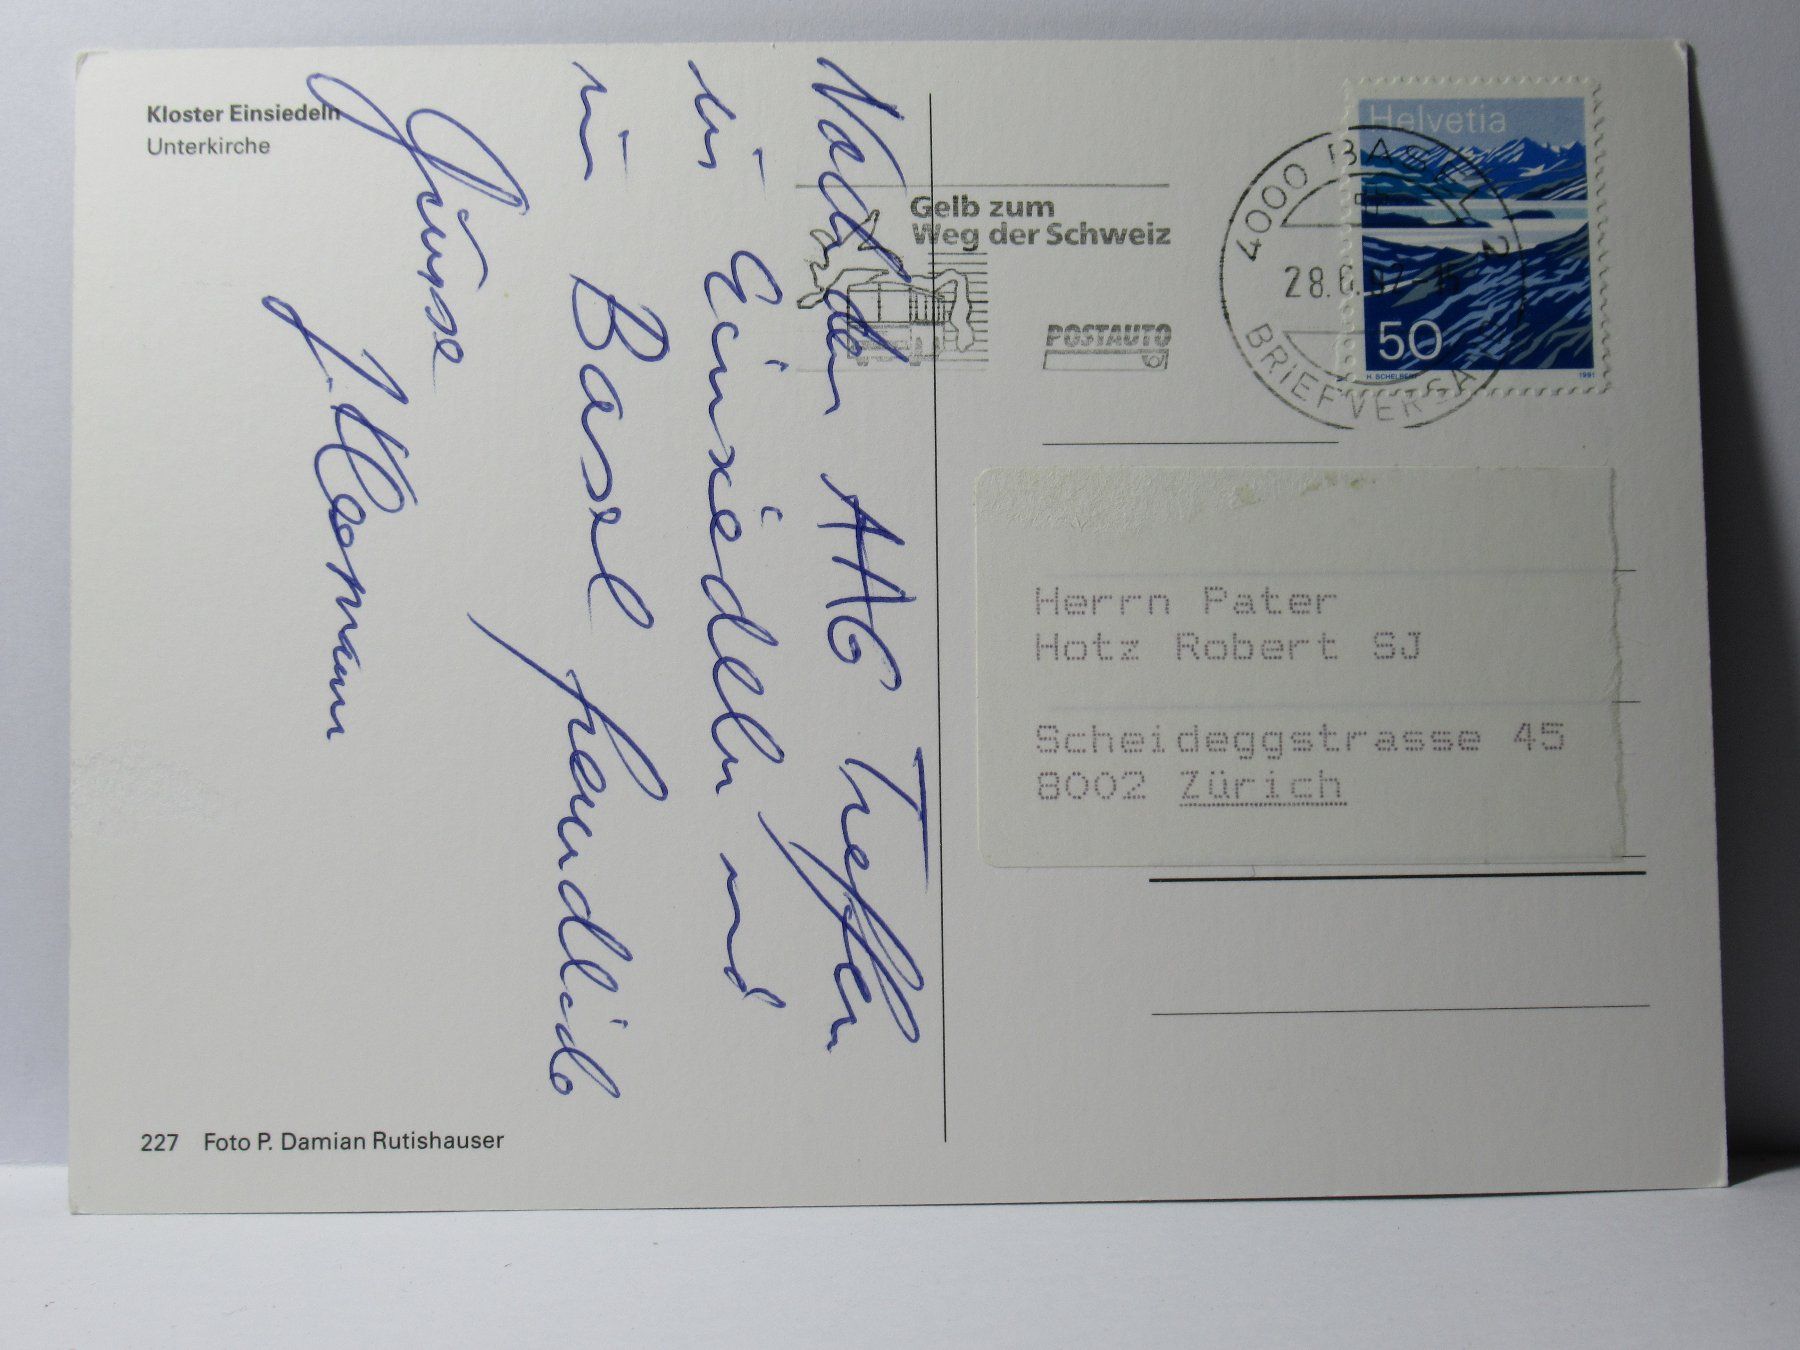 Kloster Einsiedeln
Unterkirche
Nach den AHG Treffen
in Einsiedeln und
in Basel freundlich
Grüsse
227 Foto P. Damian Rutishauser
Gelb zum
Weg der Schweiz
POSTAUTO
4000 BASEL 2
28.6.92-15
BRIEFVERSAND
Helvetia
50
H. SCHELBERT 1991
Herrn Pater
Hotz Robert SJ
Scheideggstrasse 45
8002 Zürich